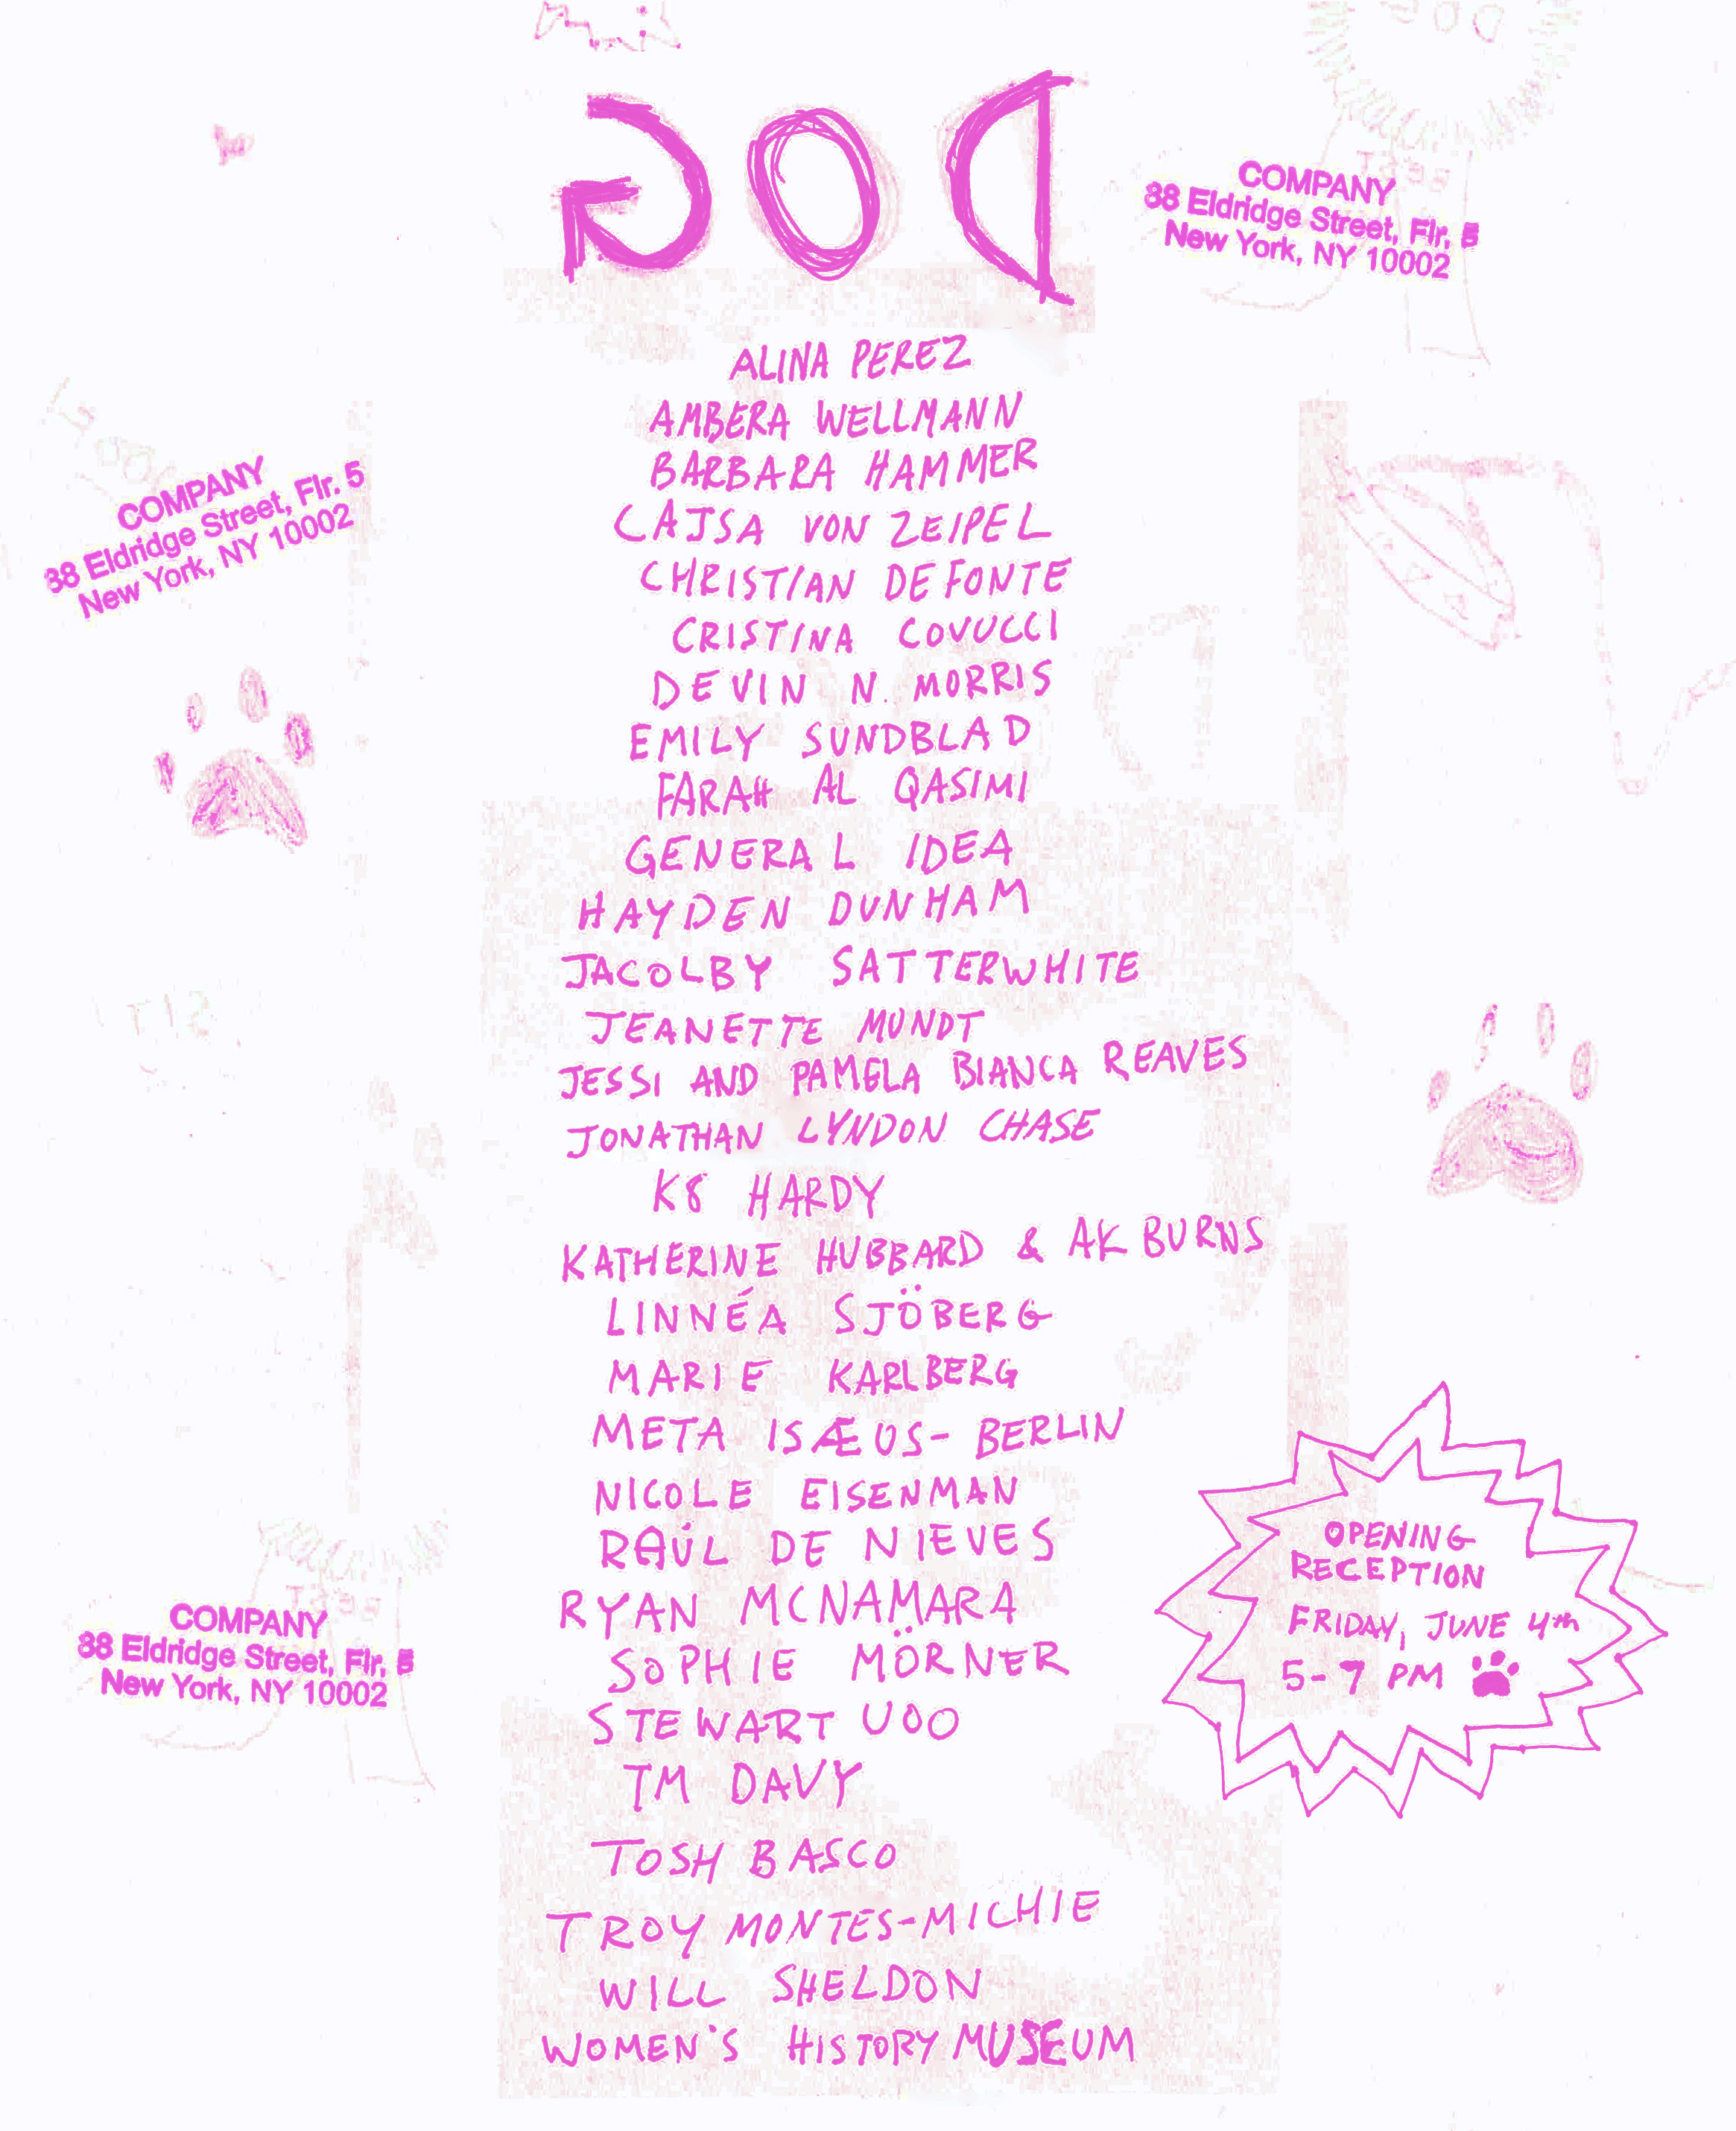 DOG
COMPANY
88 Eldridge Street, Flr. 5
New York, NY 10002
ALINA PEREZ
AMBERA WELLMANN
BARBARA HAMMER
CAJSA VON ZEIPEL
CHRISTIAN DEFONTE
CRISTINA COVUCCI
DEVIN N. MORRIS
EMILY SUNDBLAD
FARAH AL QASIMI
GENERAL IDEA
HAYDEN DUNHAM
JACOLBY SATTERWHITE
JEANETTE MUNDT
JESSI AND PAMELA BIANCA REAVES
JONATHAN LYNDON CHASE
K8 HARDY
KATHERINE HUBBARD & AK BURNS
LINNÉA SJÖBERG
MARIE KARLBERG
META ISÆUS-BERLIN
NICOLE EISENMAN
RAÚL DE NIEVES
RYAN MCNAMARA
SOPHIE MÖRNER
STEWART UOO
TM DAVY
TOSH BASCO
TROY MONTES-MICHIE
WILL SHELDON
WOMEN'S HISTORY MUSEUM
COMPANY
88 Eldridge Street, Flr. 5
New York, NY 10002
COMPANY
88 Eldridge Street, Flr. 5
New York, NY 10002
OPENING
RECEPTION
FRIDAY, JUNE 4th
5-7 PM